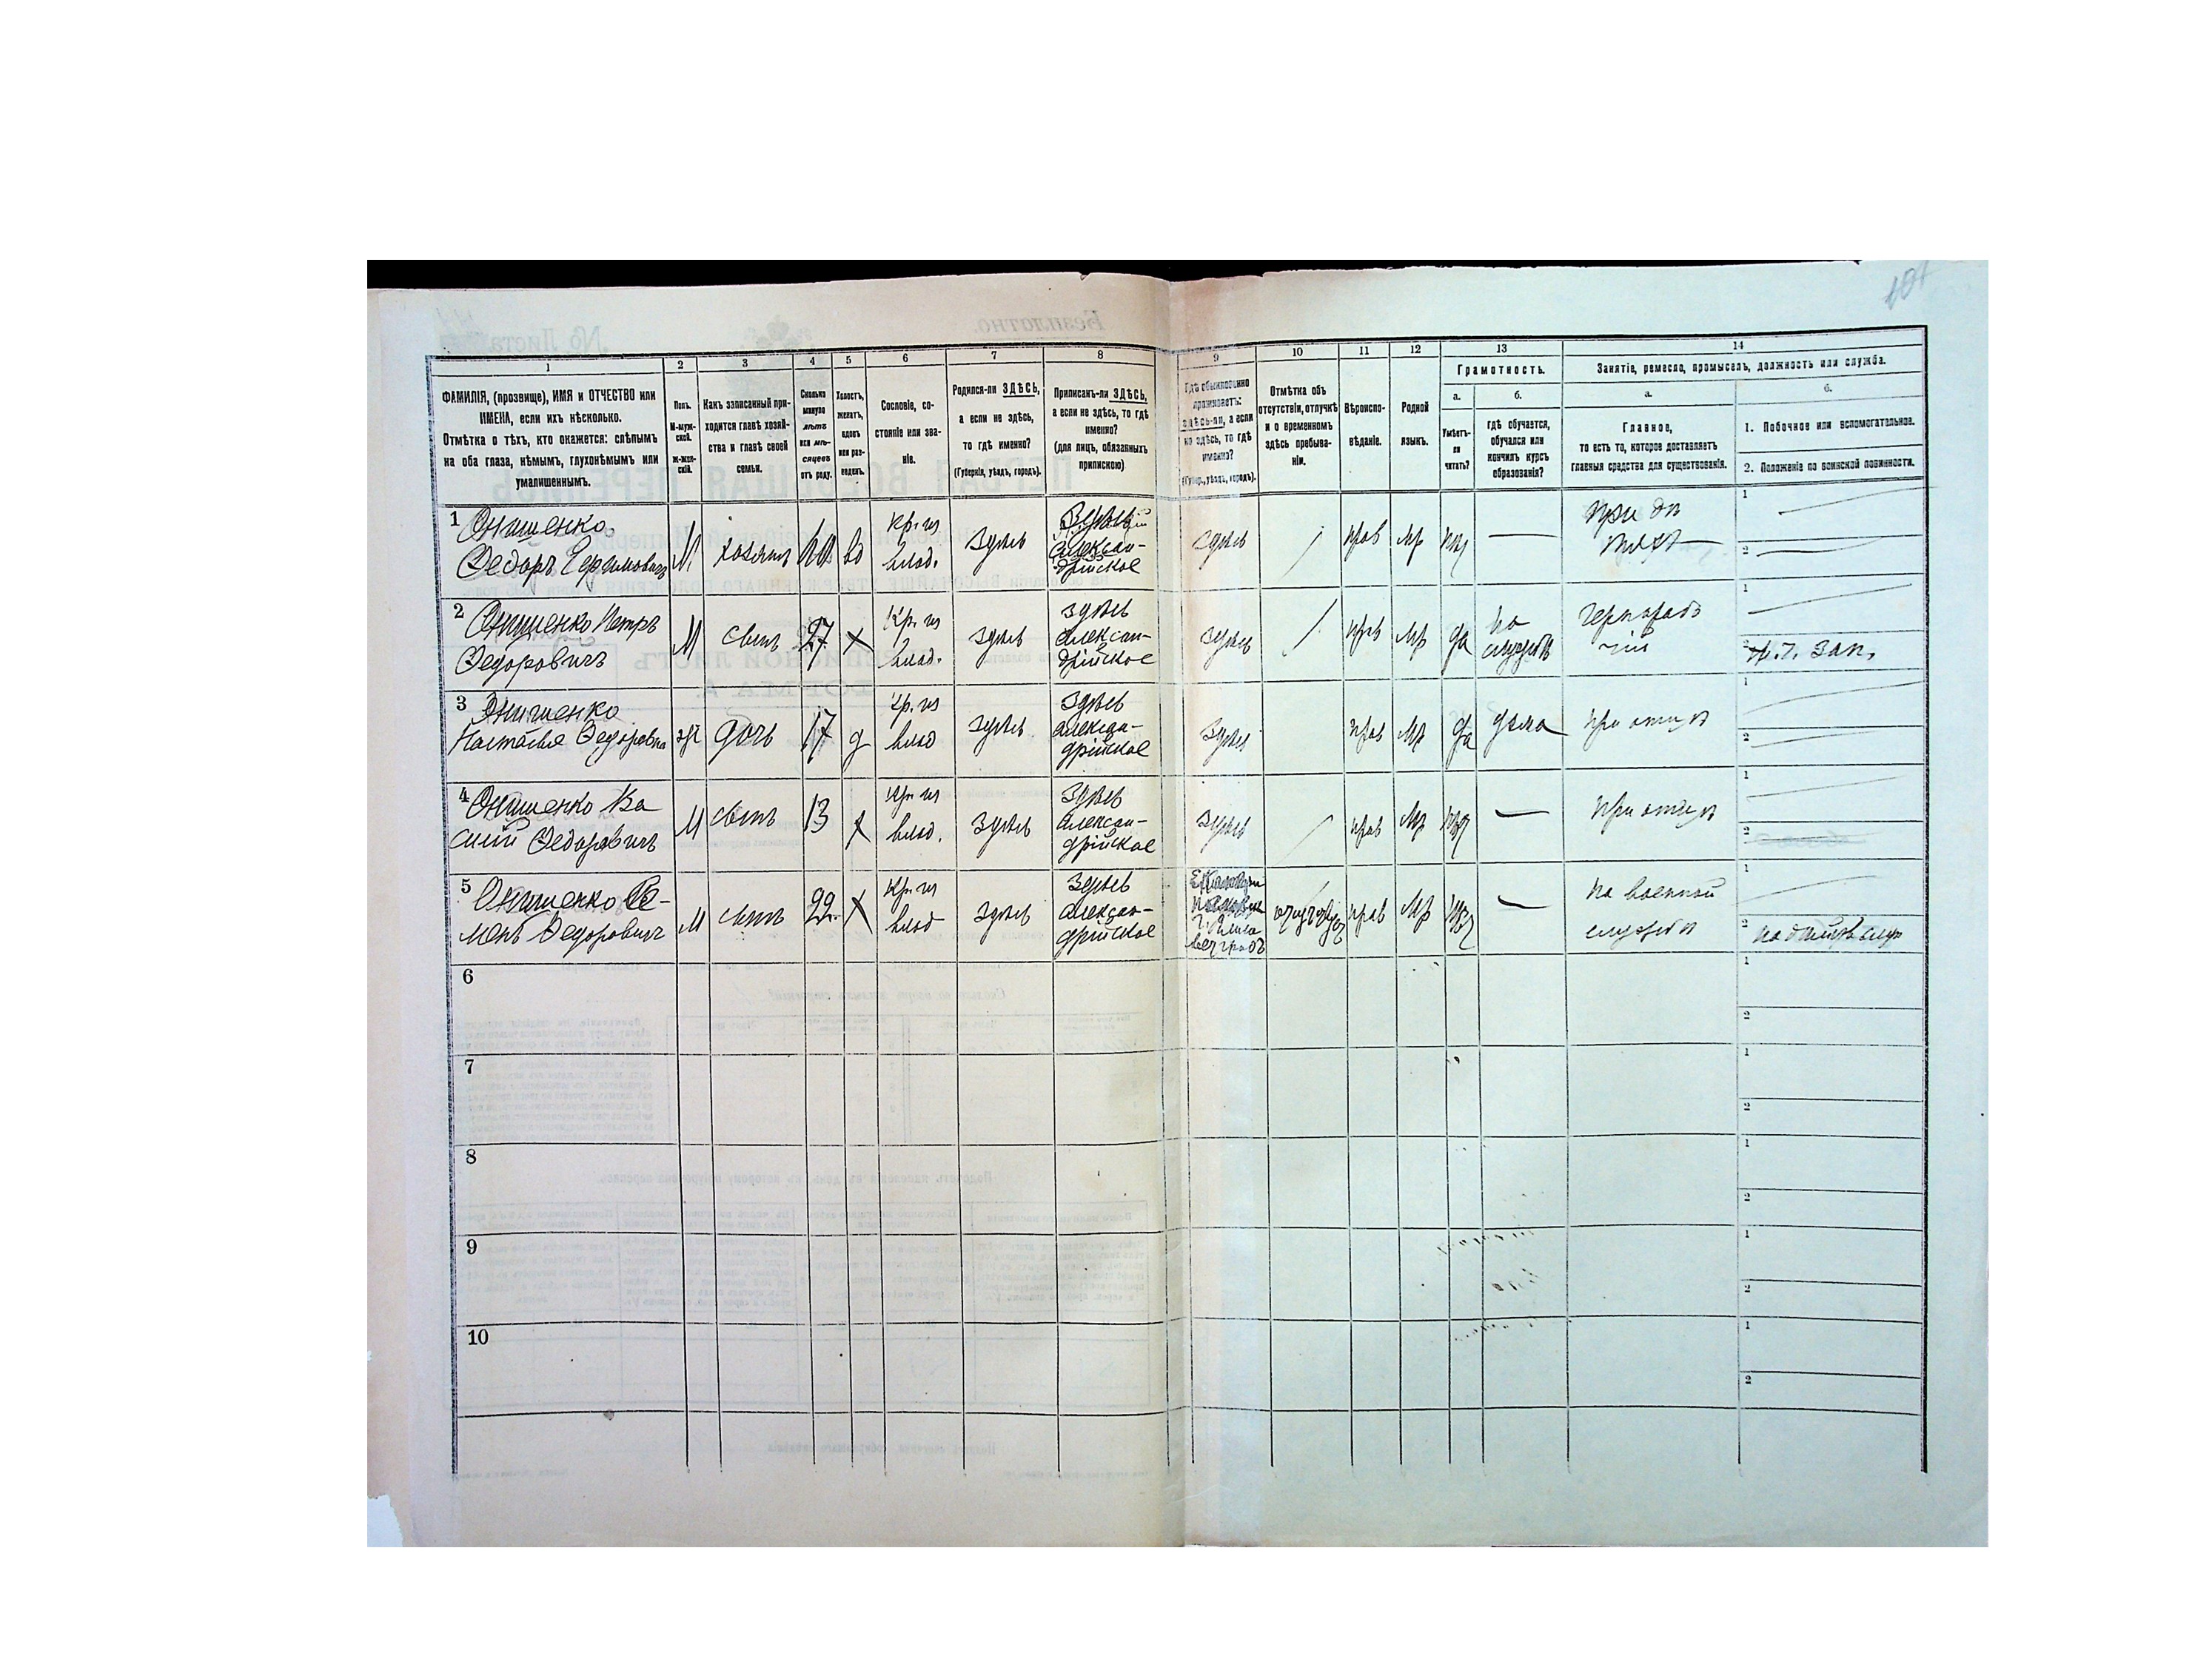 101
1 2 3 4 5 6 7 8 9 10 11 12 13 14
ФАМИЛІЯ, (прозвище), ИМЯ и ОТЧЕСТВО или
ИМЕНА, если ихъ нѣсколько.
Отмѣтка о тѣхъ, кто окажется: слѣпымъ
на оба глаза, нѣмымъ, глухонѣмымъ или
умалишеннымъ.
Полъ.
М-муж-
ской.
ж-жен-
скій.
Какъ записанный при-
ходится главѣ хозяй-
ства и главѣ своей
семьи.
Сколько
минуло
лѣтъ
или мѣ-
сяцевъ
отъ роду.
Холостъ,
женатъ,
вдовъ
или раз-
веденъ.
Сословіе, со-
стояніе или зва-
ніе.
Родился-ли ЗДѢСЬ,
а если не здѣсь,
то гдѣ именно?
(Губернія, уѣздъ, городъ).
Приписанъ-ли ЗДѢСЬ,
а если не здѣсь, то гдѣ
именно?
(для лицъ, обязанныхъ
припискою)
Гдѣ обыкновенно
проживаетъ:
здѣсь-ли, а если
не здѣсь, то гдѣ
именно?
(Губер., уѣздъ, городъ).
Отмѣтка объ
отсутствіи, отлучкѣ
и о временномъ
здѣсь пребыва-
ніи.
Вѣроиспо-
вѣданіе.
Родной
языкъ.
Грамотность.
а.
Умѣетъ-
ли
читать?
б.
гдѣ обучается,
обучался или
кончилъ курсъ
образованія?
Занятіе, ремесло, промыселъ, должность или служба.
а.
Главное,
то есть то, которое доставляетъ
главныя средства для существованія.
б.
1. Побочное или вспомогательное.
2. Положеніе по воинской повинности.
1 Онищенко
Федоръ Ефимовичъ М хозяинъ 60 вд Кр. из влад. здѣсь Здѣсь Алексан-
дрійское здѣсь прав мр
2 Онищенко Петръ
Федоровичъ М сынъ 27 х Кр. из влад. здѣсь здѣсь Алексан-
дрійское здѣсь прав мр да на
службѣ чернорабо
чій зап.
3 Онищенко
Настасья Федоровна ж дочь 17 д Кр. из влад здѣсь здѣсь Алексан-
дрійское здѣсь прав мр да дома при отцѣ
4 Онищенко Ва
силій Федоровичъ М сынъ 13 х Кр. из влад. здѣсь здѣсь Алексан-
дрійское здѣсь прав мр при отцѣ
5 Онищенко Се-
менъ Федоровичъ М сынъ 22 х Кр. из влад здѣсь здѣсь Алексан-
дрійское г. Елиса
ветградъ прав мр на военной
службѣ
6
7
8
9
10